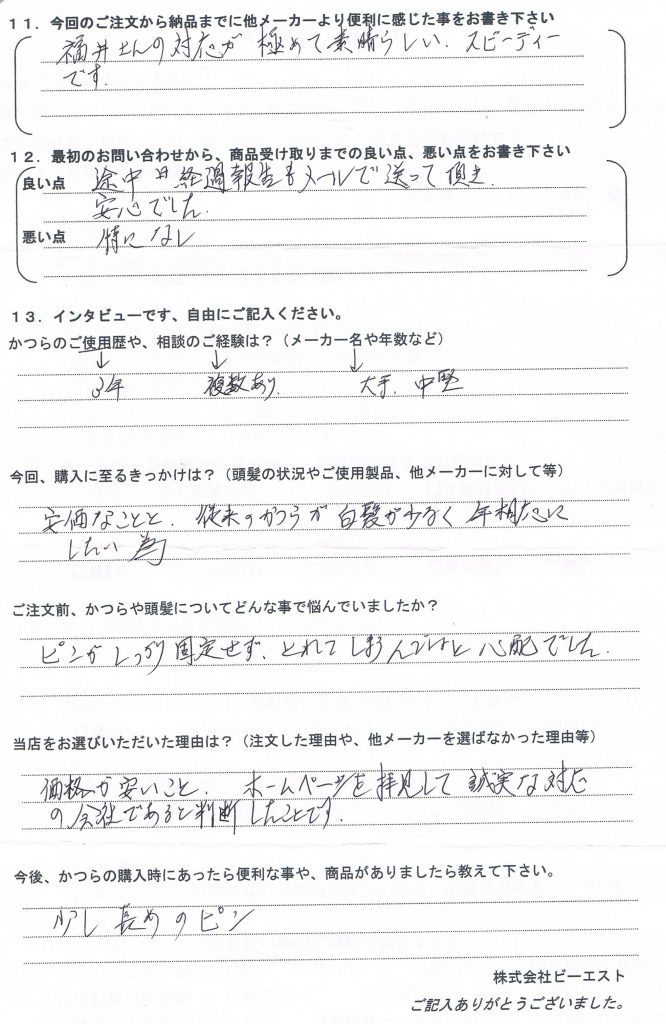 11．今回のご注文から納品までに他メーカーより便利に感じた事をお書き下さい
福井さんの対応が 極めて素晴らしい．スピーディー
です．
12．最初のお問い合わせから、商品受け取りまでの良い点、悪い点をお書き下さい
良い点 途中 経過報告もメールで送って頂き．
安心でした．
悪い点 特になし
13．インタビューです、自由にご記入ください。
かつらのご使用歴や、相談のご経験は？（メーカー名や年数など）
↓ ↓ ↓
3年 複数あり． 大手．中堅
今回、購入に至るきっかけは？（頭髪の状況やご使用製品、他メーカーに対して等）
安価なことと．従来のかつらが白髪が少なく 年相応に
したい為
ご注文前、かつらや頭髪についてどんな事で悩んでいましたか？
ピンがしっかり固定せず、とれてしまうんではと心配でした．
当店をお選びいただいた理由は？（注文した理由や、他メーカーを選ばなかった理由等）
価格が安いこと． ホームページを拝見して 誠実な対応
の会社であると判断したことです．
今後、かつらの購入時にあったら便利な事や、商品がありましたら教えて下さい。
少し長めのピン
株式会社ビーエスト
ご記入ありがとうございました。